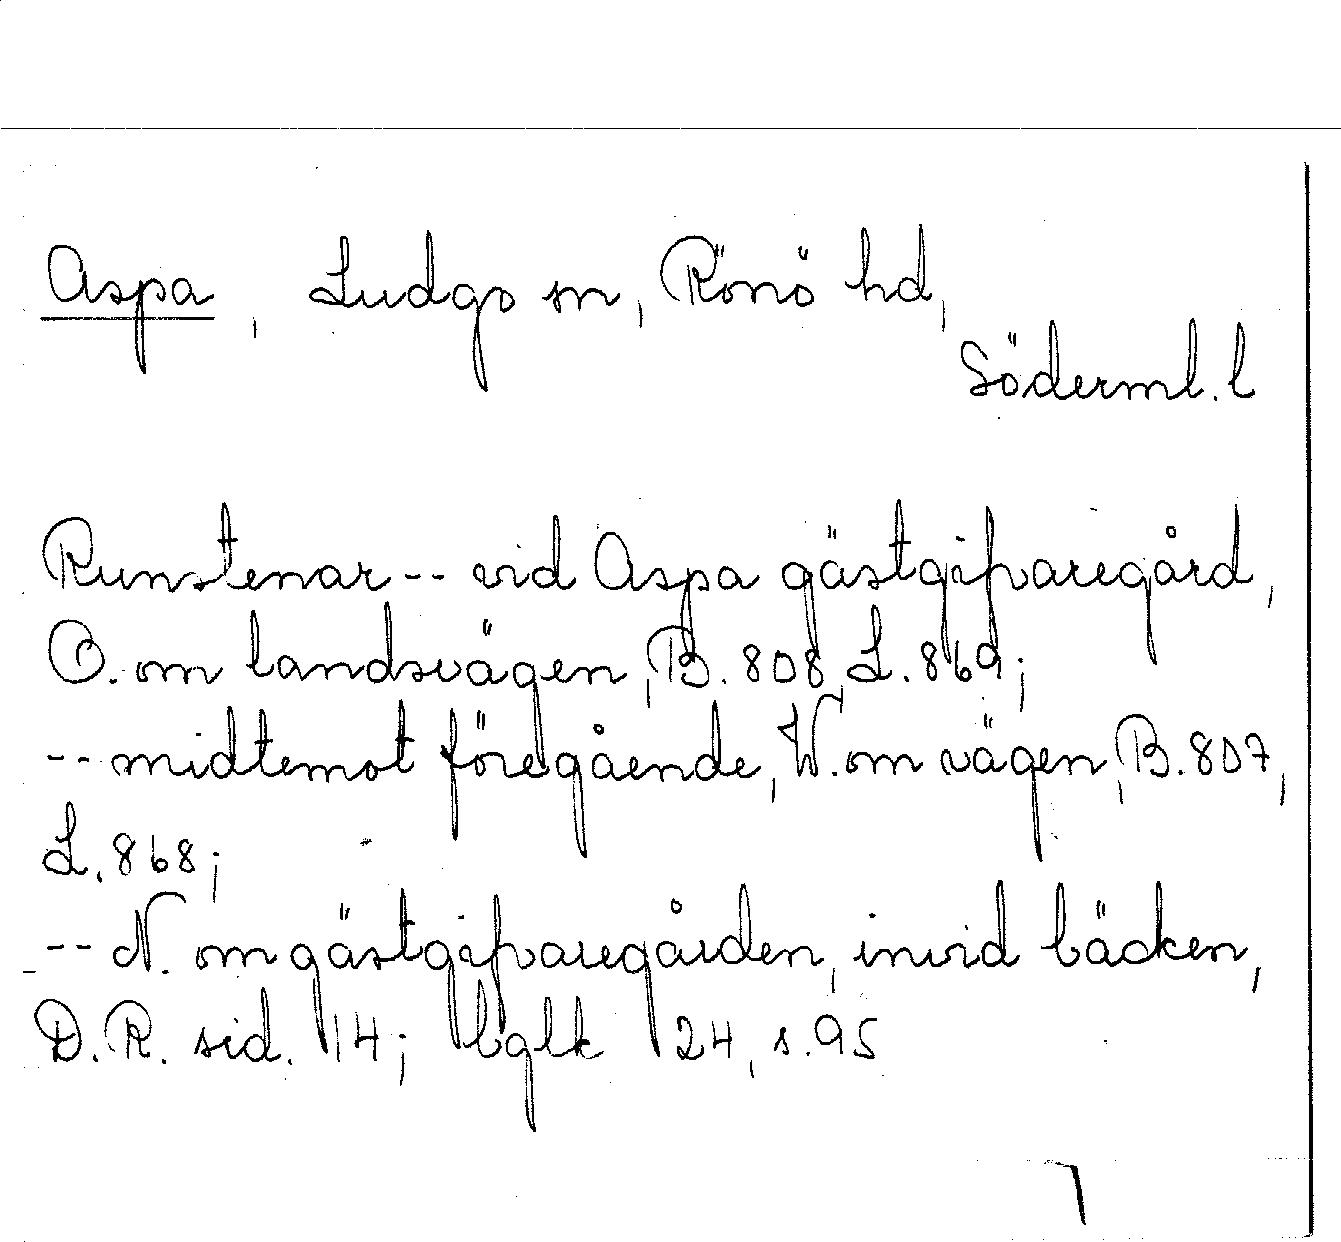 Aspa, Ludgo sn, Rönö hd,
Söderml. l
Runstenar -- vid Aspa gästgifvaregård,
O. om landsvägen, B. 808, L. 869;
-- midtemot föregående, W. om vägen, B. 807,
L. 868;
-- N. om gästgifvaregården, invid bäcken,
D. R. sid. 14; bglk 24, s. 95